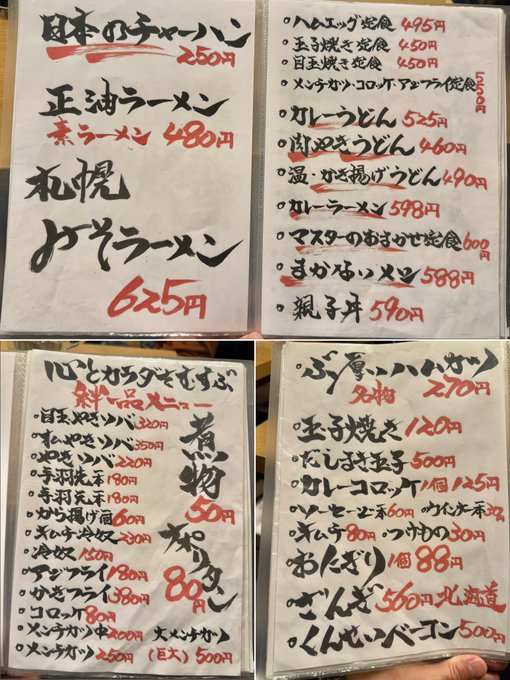 日本のチャーハン
250円
正油ラーメン
素ラーメン 480円
札幌
みそラーメン
625円
・ハムエッグ定食 495円
・玉子焼き定食 450円
・目玉焼き定食 450円
・メンチカツ・コロッケ・アジフライ定食 550円
・カレーうどん 525円
・肉やきうどん 460円
・温・かき揚げうどん 490円
・カレーラーメン 598円
・マスターのおまかせ定食 600円
・まかないメシ 588円
・親子丼 590円
心とカラダをむすぶ
絆品メニュー
・目玉やき 320円
350円
・やき 220円
・手羽先 1本 180円
・手羽元 1本 180円
・から揚げ 1個 60円
・キムチ冷奴 230円
・冷奴 150円
・アジフライ 180円
・かきフライ 380円
・コロッケ 80円
・メンチカツ中 200円 大メンチカツ
・メンチカツ 250円 (巨大) 500円
煮物
50円
ナポリタン
80円
・ぶ厚いハムカツ
名物 270円
・玉子焼き 120円
・だしまき玉子 500円
・カレーコロッケ 1個 125円
・ソーセージ一本 60円 ・ウインナー一本 30円
・キムチ 80円 ・つけもの 30円
・おにぎり 1個 88円
・ざんぎ 560円 北海道
・くんせいベーコン 500円